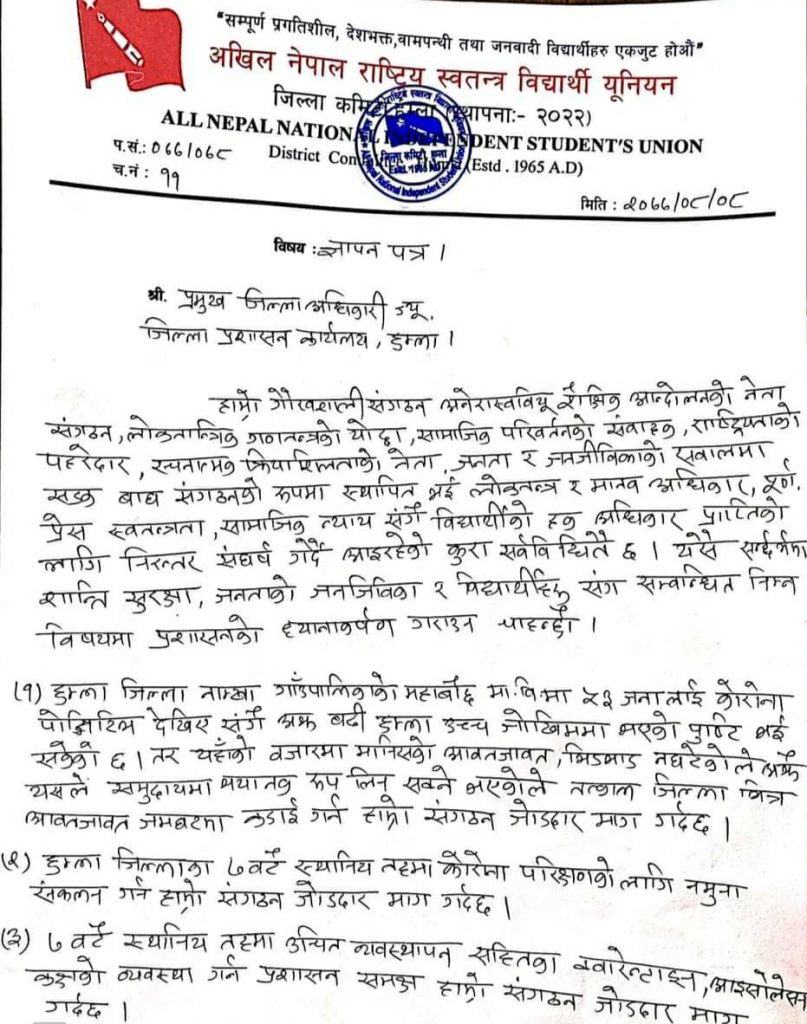 "सम्पूर्ण प्रगतिशील, देशभक्त,वामपन्थी तथा जनवादी विद्यार्थीहरु एकजुट होऔं"
अखिल नेपाल राष्ट्रिय स्वतन्त्र विद्यार्थी यूनियन
जिल्ला कमिटी हुम्ला स्थापनाः- २०२२)
ALL NEPAL NATIONAL INDEPENDENT STUDENT'S UNION
District Committee Humla (Estd . 1965 A.D)
प.सं.: ०७७/०७८
च.नं : ११
मिति : २०७७/०८/०८
विषय : ज्ञापन पत्र ।
श्री. प्रमुख जिल्ला अधिकारी ज्यू.
जिल्ला प्रशासन कार्यलय, हुम्ला ।
हाम्रो गौरवशाली संगठन अनेरास्ववियू शैक्षिक आन्दोलनको नेता
संगठन, लोकतान्त्रिक गणतन्त्रको योद्धा, सामाजिक परिवर्तनको संवाहक, राष्ट्रियताको
पहरेदार, रचनात्मक क्रियाशिलताको नेता, जनता र जनजीविकाको सवालमा
सडक बाघ संगठनको रुपमा स्थापित भई लोकतन्त्र र मानव अधिकार, पूर्ण
प्रेस स्वतन्त्रता, सामाजिक न्याय संगै विद्यार्थीको हक अधिकार प्राप्तिको
लागि निरन्तर संघर्ष गर्दै आइरहेको कुरा सर्वविधितै छ । यसै सन्दर्भमा
शान्ति सुरक्षा, जनताको जनजिविका र विद्यार्थीहरु संग सम्बन्धित निम्न
विषयमा प्रशासनको ध्यानाकर्षण गराउन चाहन्छौं ।
(१) हुम्ला जिल्ला नाम्खा गाँउपालिकाको महाबौद्ध मा.वि.मा ५३ जना लाई कोरोना
पोजिटिभ देखिए संगै अझ बढी हुम्ला उच्च जोखिममा भएको पुष्टि भई
सकेको छ । तर यहाँको बजारमा मानिसको आवतजावत, भिडभाड नघटेकोले अझै
यसले समुदायमा भयानक रुप लिन सक्ने भएकोले तत्काल जिल्ला भित्र
आवतजावत जमघटमा कडाई गर्न हाम्रो संगठन जोडदार माग गर्दछ ।
(२) हुम्ला जिल्लाका ७ वटै स्थानिय तहमा कोरोना परिक्षणको लागि नमुना
संकलन गर्न हाम्रो संगठन जोडदार माग गर्दछ ।
(३) ७ वटै स्थानिय तहमा उचित व्यवस्थापन सहितका क्वारेन्टाइन, आइसोलेसन
कक्षको व्यवस्था गर्न प्रशासन समक्ष हाम्रो संगठन जोडदार माग
गर्दछ ।